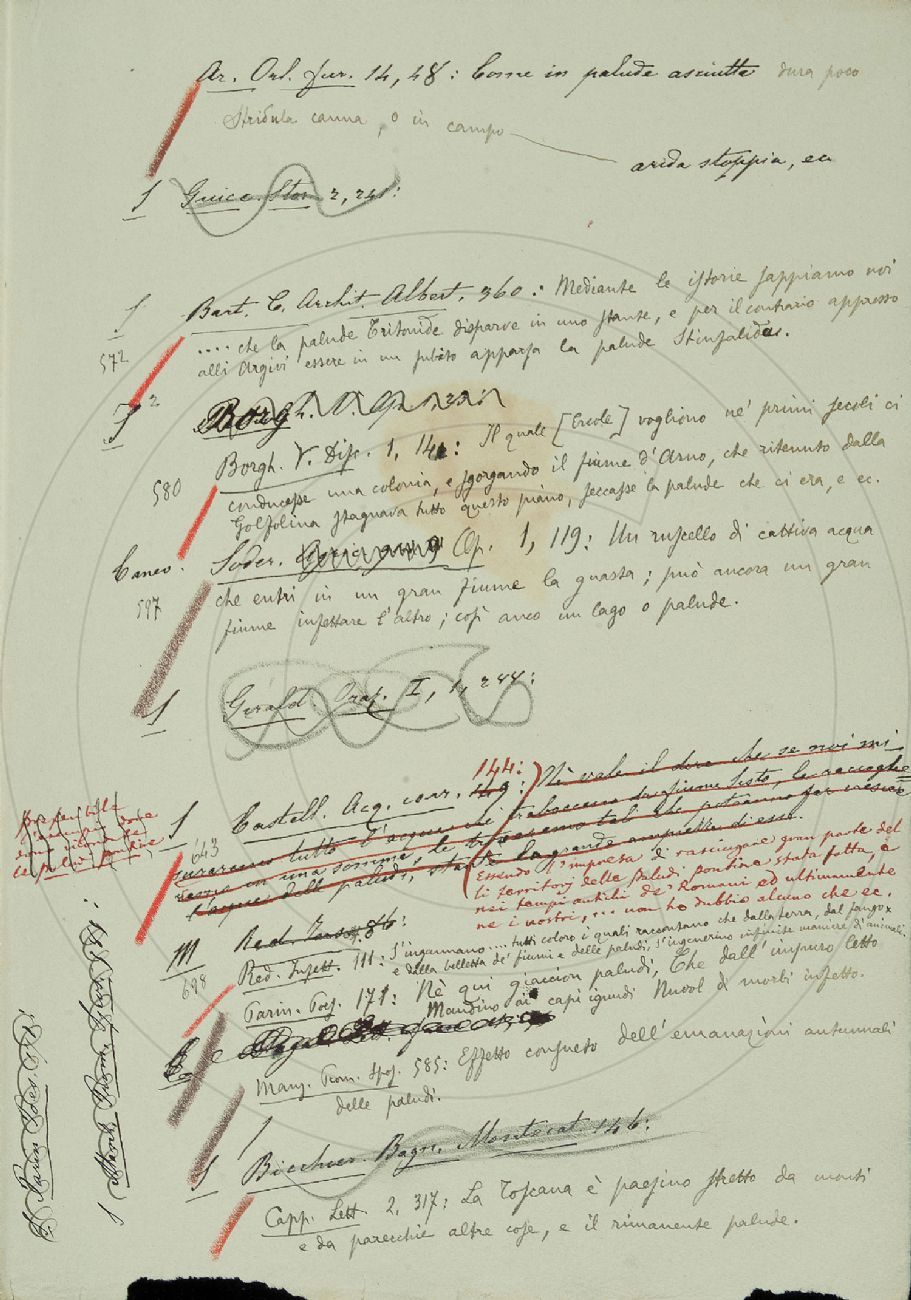 Ar. Orl. fur. 14, 48: Come in palude asciutta dura poco
Stridula canna, o in campo
arida stoppia, ec
S Guicc. Stor. 2, 241:
S Bart. C. Archit. Albert. 360: Mediante le istorie sappiamo noi
572 .... che la palude Tritonide disparve in uno stante, e per il contrario appresso
alli Argivi essere in un subito apparsa la palude Stinfalida.
S 2 Borgh.
Borgh. V. Disc. 1, 14: Il quale [Ercole] vogliono ne' primi secoli ci
580 conducesse una colonia, e sgorgando il fiume d'Arno, che ritenuto dalla
Golfolina stagnava tutto questo piano, seccasse la palude che ci era, e ec.
Canev. Soder. Op. 1, 119: Un ruscello di cattiva acqua
597 che entri in un gran fiume la guasta; può ancora un gran
fiume infettare l'altro; così anco un lago o palude.
S Gerald. Oraz. I, 1, 244:
144:
S Castell. Acq. corr. 49: Nè vale il dire che se noi mi-
643 surassimo tutte l'acque che
in una somma, le
l'acque delle paludi, stante la grande ampiezza di esse.
Essendo l'impresa di rasciugare gran parte del
li territorj delle Paludi Pontine stata fatta, e
nei tempi antichi de' Romani ed ultimamente
ne i nostri, ... non ho dubbio alcuno che ec.
le paludi pontine
M Red. 86:
698 Red. Insett. 111: S'ingannano ... tutti coloro i quali raccontano che dalla terra, dal fango
e dalla belletta de' fiumi e delle paludi, s'ingenerino infinite maniere d'animali.
Parin. Poes. 171: Nè qui giaccion paludi, Che dall'impuro letto
Mandino ai capi ignudi Nuvol di morbi infetto.
Manz. Prom. Spos. 585: Effetto consueto dell'emanazioni autunnali
delle paludi.
S Bicchier. Bagn. Montecat 146:
Capp. Lett. 2, 317: La Toscana è paesino stretto da monti
e da parecchie altre cose, e il rimanente palude.